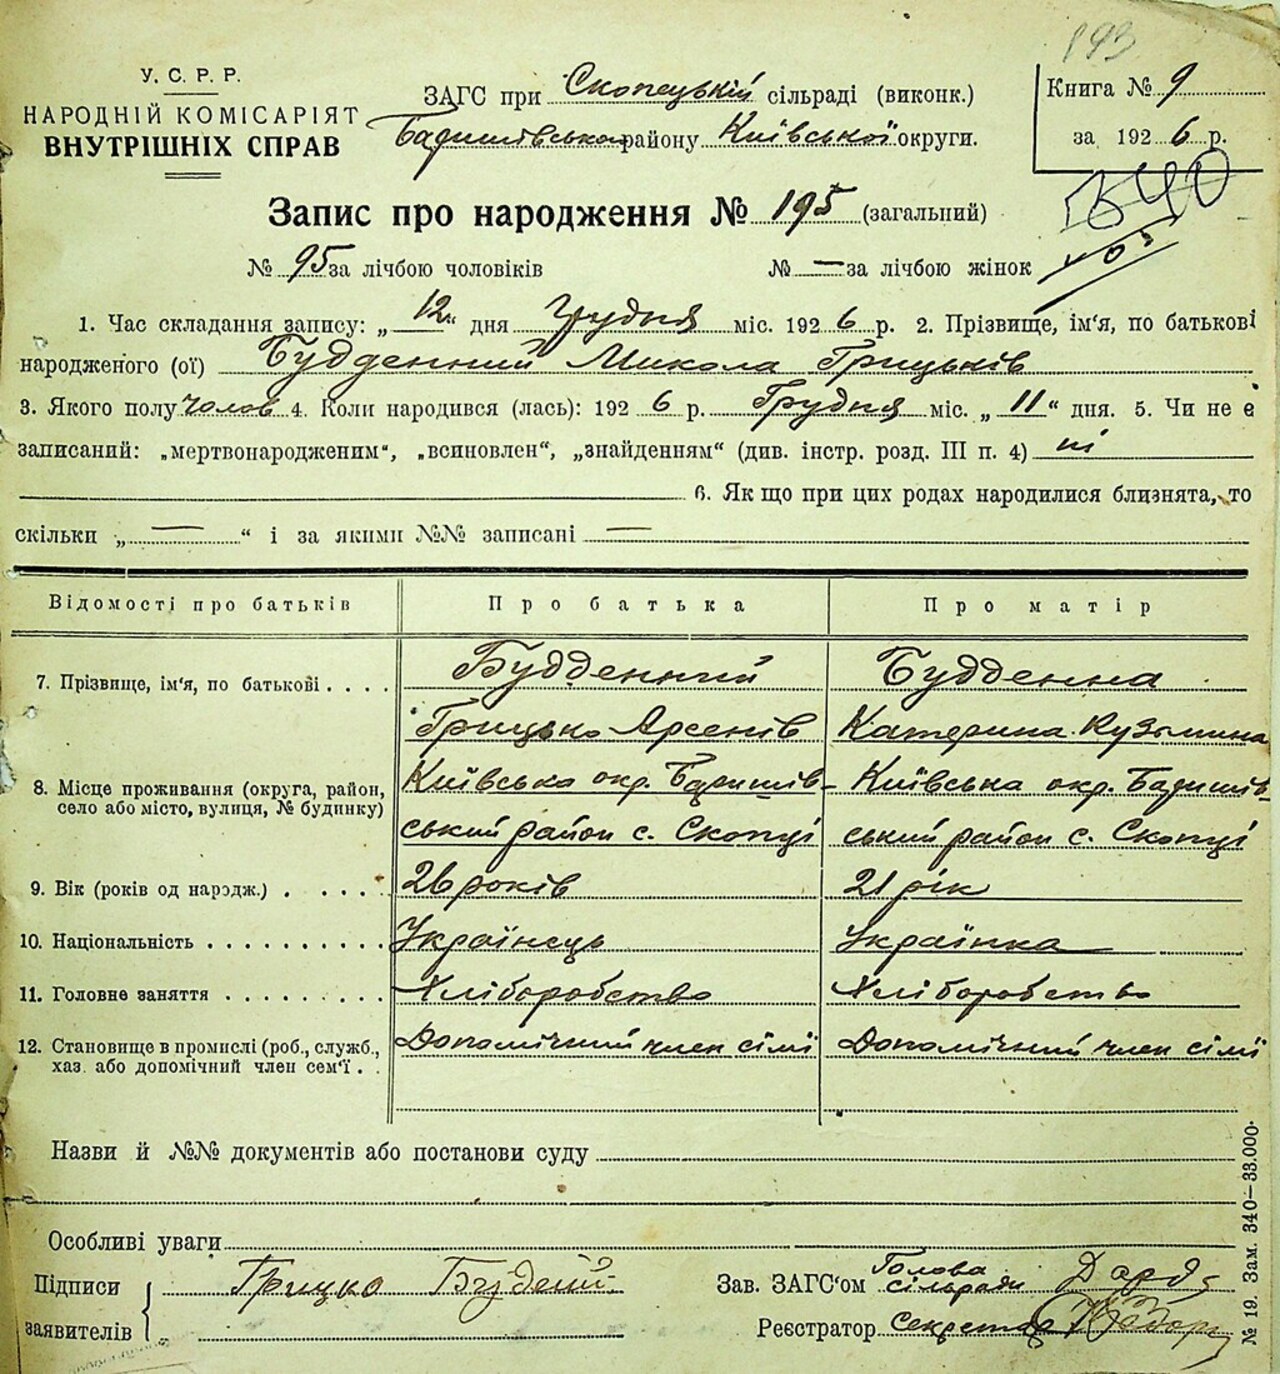 193
У. С. Р. Р.
НАРОДНІЙ КОМІСАРІЯТ
ВНУТРІШНІХ СПРАВ
ЗАГС при Скопецькій сільраді (виконк.)
Баришівського району Київської округи.
Книга № 9
за 1926 р.
Запис про народження № 195 (загальний)
№ 95 за лічбою чоловіків № — за лічбою жінок
1. Час складання запису: „12“ дня Грудня міс. 1926 р. 2. Прізвище, ім'я, по батькові
народженого (ої) Будденний Микола Грицьків
3. Якого полу чолов 4. Коли народився (лась): 1926 р. Грудня міс. „11“ дня. 5. Чи не є
записаний: „мертвонародженим“, „всиновлен“, „знайденням“ (див. інстр. розд. III п. 4) ні
6. Як що при цих родах народилися близнята, то
скільки „—“ і за якими №№ записані —
Відомості про батьків Про батька Про матір
7. Прізвище, ім'я, по батькові . . . . Будденний Будденна
Грицько Арсенів Катерина Кузьмина
8. Місце проживання (округа, район, Київська окр. Баришів- Київська окр. Баришів-
село або місто, вулиця, № будинку)
ський район с. Скопці ський район с. Скопці
9. Вік (років од нарэдж.) . . . . . 26 років 21 рік
10. Національність . . . . . . . . . . Українець Українка
11. Головне заняття . . . . . . . . . Хліборобство Хліборобство
12. Становище в промислі (роб., служб., Допомічний член сімї Допомічний член сімї
хаз. або допомічний член сем'ї . .
Назви й №№ документів або постанови суду
Особливі уваги
Підписи
заявителів
Грицко Будений
Зав. ЗАГС'ом Голова сільради
Реєстратор Секретар
№ 19. Зам. 340—33.000.